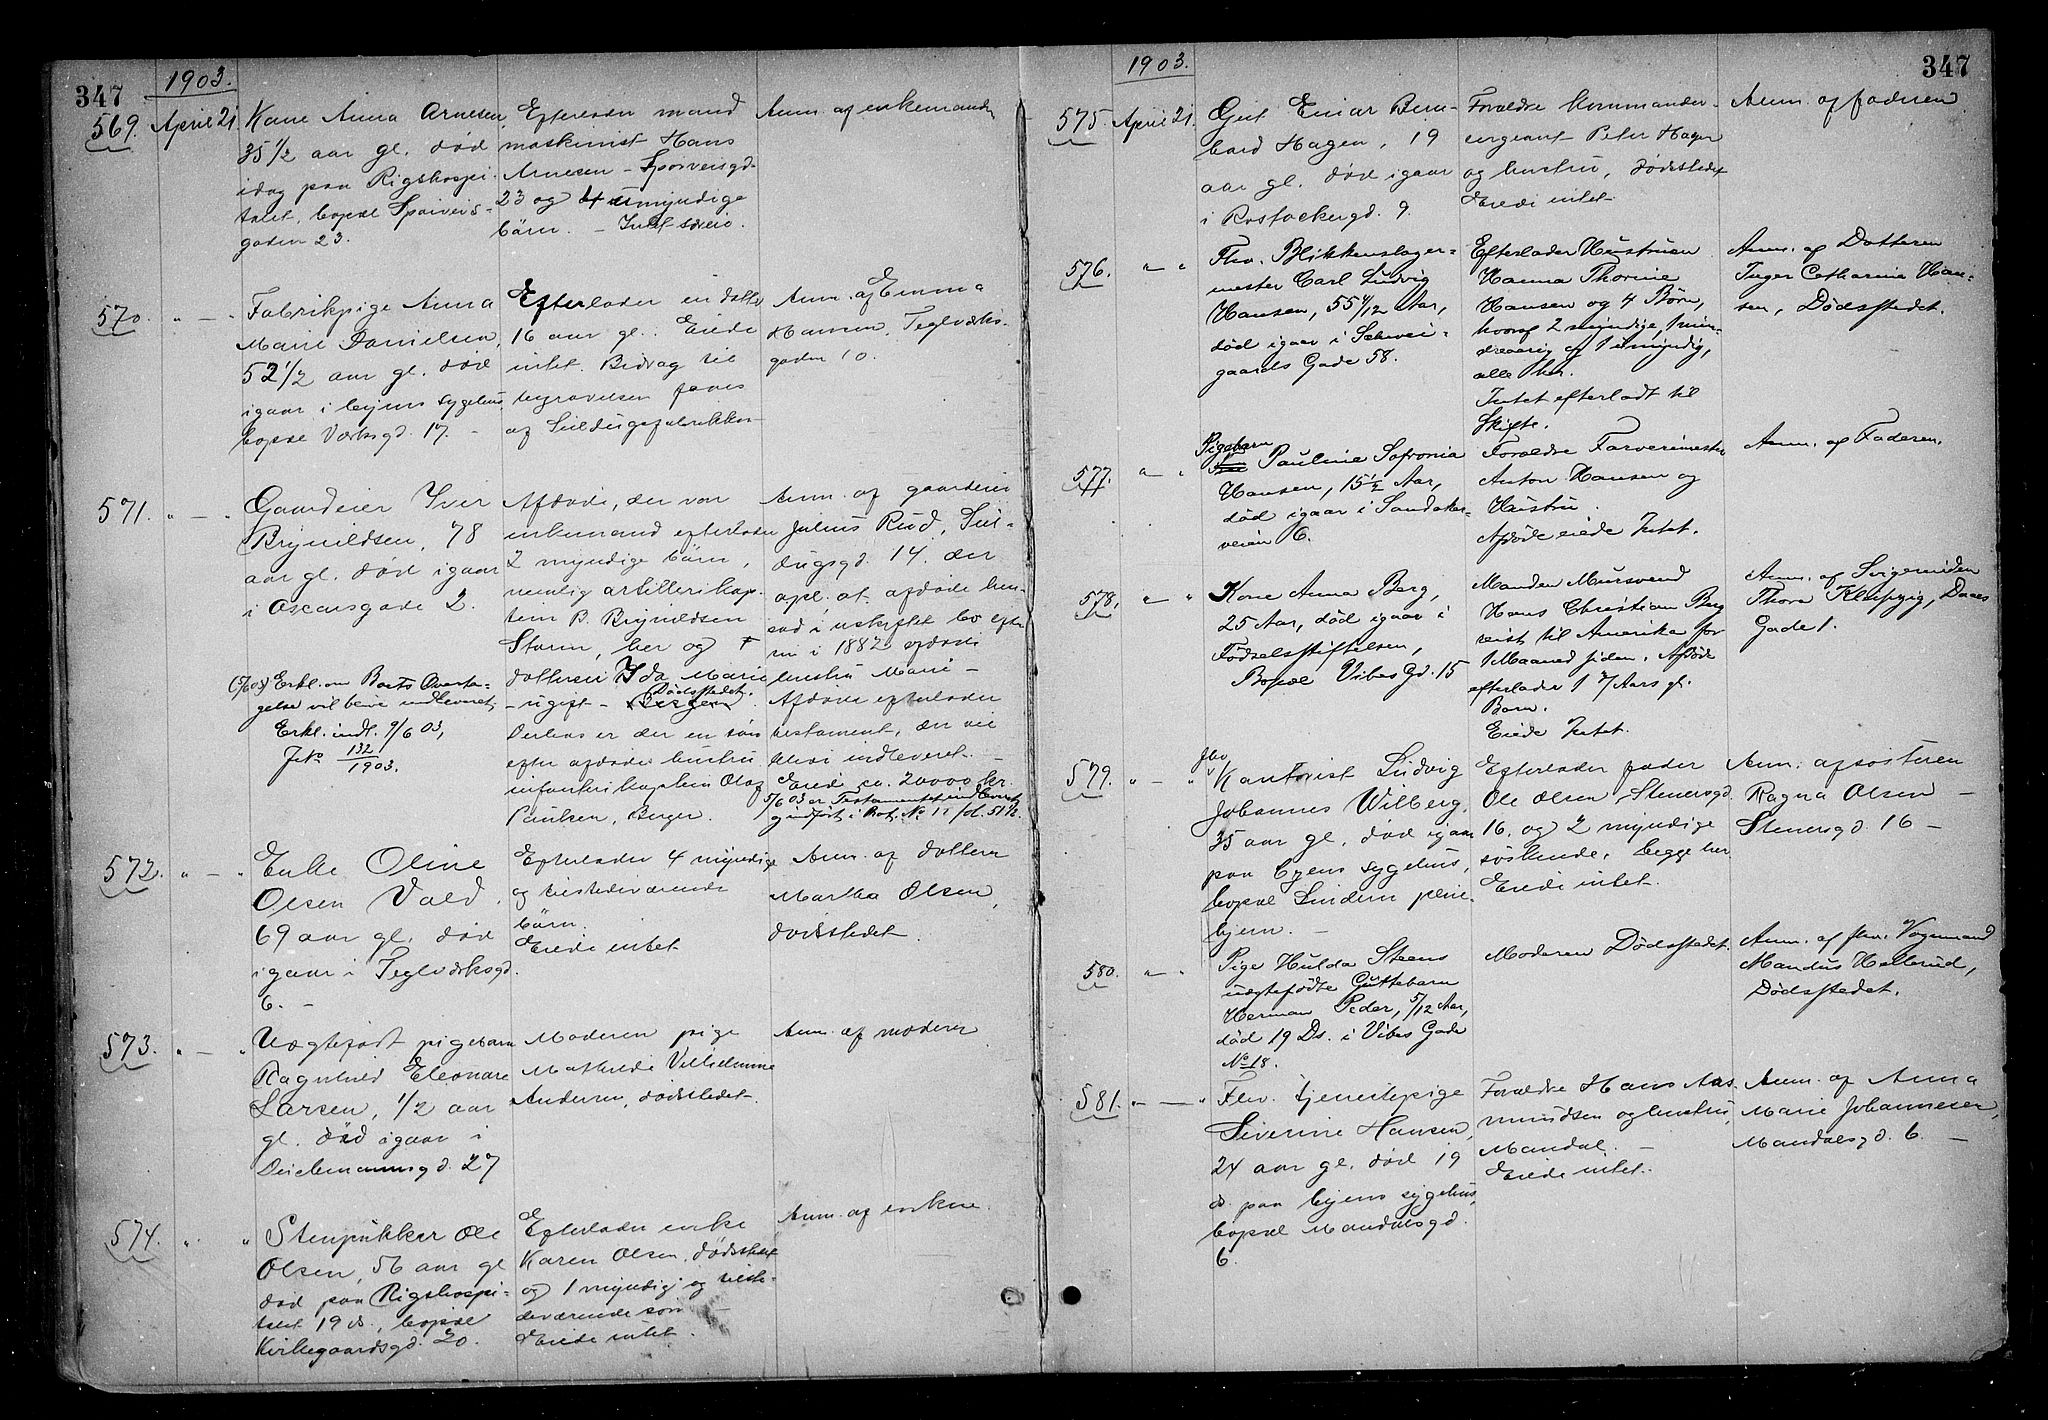 347
1903.
569. April 21 Kone Anna Arnesen,
35 1/2 aar gl. død
idag paa Rigshospi-
talet, bopæl Sporveis-
gaden 23.
Efterlader mand
maskinist Hans
Arnesen - Sporveisgd.
23 og 4 umyndige
børn. - Intet særeie.
Anm. af enkemanden
570. " — " Fabrikpige Anna
Marie Danielsen,
52 1/2 aar gl. død
igaar i byens sygehus,
bopæl Værksgd. 17. -
Efterlader en datter
16 aar gl. Eiede
intet. Bidrag til
begravelsen faaes
af Seildugsfabrikken
Anm. af Emma
Hansen, Teglværks-
gaden 10.
571. " — " Gaardeier Iver
Brynildsen, 78
aar gl. død igaar
i Oscarsgade 2.
Erkl. om Boets Overta-
gelse vil blive indleveret.
Erkl. indl. 9/6 03,
Jno 132/1903.
Afdøde, der var
enkemand efterlader
2 myndige børn,
nemlig artillerikap-
tein P. Brynildsen
Storm, her og
datteren Ida Marie
- ugift - Dødsstedet.
Derhos er der en søn
efter afdødes hustru
infanterikaptein Olaf
Paulsen, Berger.
Anm. af gaardeier
Julius Rud, Seil-
dugsgd. 14. der
opl. at afdøde hen-
sad i uskiftet bo efter
en i 1882 afdøde
hustru Marie -
Afdøde efterlader
testament, der vil
blive indleveret. -
Eiede ca. 20000 kr.
5/6 03 er Testamentet indleveret
og indført i Prot. No 11 fol. 51 1/2.
572. " — " Enke Oline
Olsen Vald,
69 aar gl. død
igaar i Teglværksgd.
6. -
Efterlader 4 myndige
og tilstedeværende
børn.
Eiede intet
Anm. af datteren
Martha Olsen,
dødsstedet.
573. " — " Uægtefødt pigebarn
Ragnhild Eleonore
Larsen, 1/2 aar
gl. død igaar i
Deichmannsgd. 27
Moderen pige
Mathilde Vilhelmine
Andersen, dødsstedet.
Anm. af moderen
574. " " Stenpukker Ole
Olsen, 56 aar gl.
død paa Rigshospi-
talet 19 ds., bopæl
Kirkegaardsgd. 20.
Efterlader enke
Karen Olsen, dødsstedet
og 1 myndig og tilste-
deværende søn -
Eiede intet.
Anm. af enken.
347
1903.
575. April 21. Geit Einar Bern-
hard Hagen, 19
aar gl. død igaar
i Rostockergd. 9.
Forældre kommander-
sergeant Peter Hagen
og hustru, dødsstedet
Eiede intet.
Anm. af faderen
576. " — " Fhv. Blikkenslager-
mester Carl Ludvig
Hansen, 55 4/12 Aar,
død igaar i Schwei-
gaards Gade 58.
Efterlader Hustruen
Hanna Thorine
Hansen og 4 Børn,
hvoraf 2 myndige, 1 min-
dreaarig og 1 umyndig,
alle her.
Intet efterladt til
Skifte.
Anm. af Datteren
Inger Catharina Han-
sen, Dødsstedet.
577. " — " Pigebarn
Pauline Sofronia
Hansen, 15 1/2 Aar,
død igaar i Sandaker-
veien 6.
Forældre Farverimester
Anton Hansen og
Hustru.
Afdøde eiede Intet.
Anm. af Faderen.
578. " — " Kone Anna Berg,
25 Aar, død igaar i
Fødselsstiftelsen,
Bopæl Vibes Gd. 15
Manden Mursvend
Hans Christian Berg
reist til Amerika for
1 Maaned siden. Afdøde
efterlader 1 7 Aars gl.
Barn.
Eiede Intet.
Anm. af Svigerinden
Thora Kleipzig, Daaes
Gade 1.
579. " — " fhv
Kontorist Ludvig
Johannes Wilberg,
35 aar gl. død igaar
paa byens sygehus,
bopæl Lindern pleie-
hjem. -
Efterlader fader
Ole Olsen, Stenersgd.
16, og 2 myndige
søskende, begge her
Eiede intet.
Anm. af søsteren
Ragna Olsen -
Stenersgd. 16 -
580. " — " Pige Hulda Steens
uægtefødte Guttebarn
Herman Peder, 5/12 Aar,
død 19 Ds. i Vibes Gade
No 18.
Moderen Dødsstedet.
Anm. af fhv. Vognmand
Mandus Hellerud,
Dødsstedet.
581. " — " Fhv. tjenestepige
Severine Hansen,
24 aar gl. død 19
ds. paa byens sygehus,
bopæl Mandalsgd.
6.
Forældre Hans Aas-
mundsen og hustru,
Mandal. -
Eiede intet.
Anm. af Anna
Marie Johannesen,
Mandalsgd. 6. -